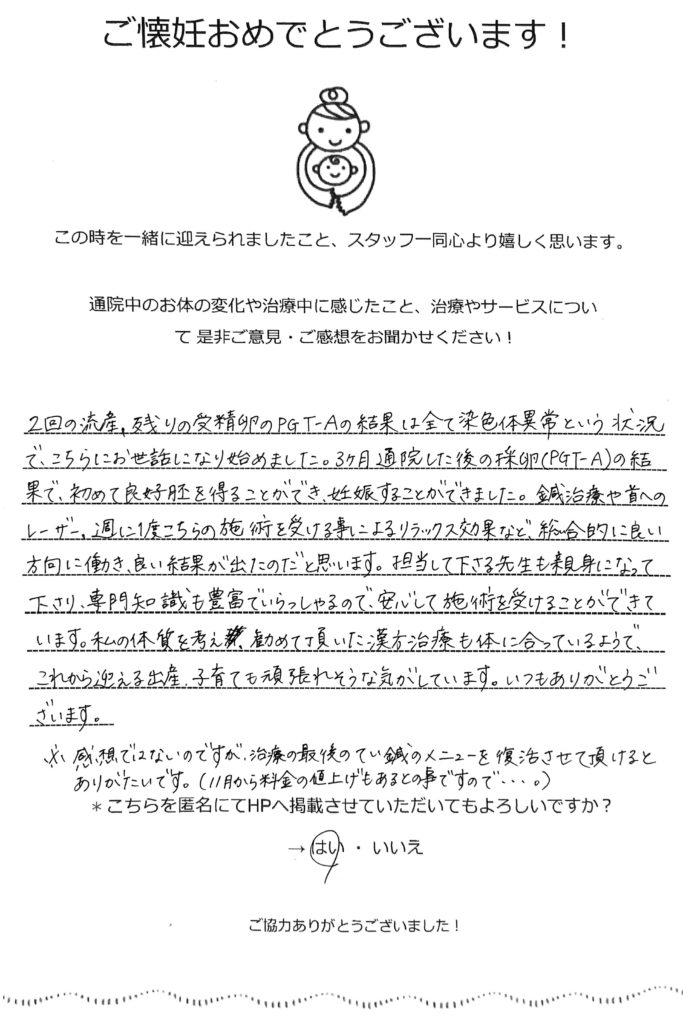 ご懐妊おめでとうございます！
この時を一緒に迎えられましたこと、スタッフ一同心より嬉しく思います。
通院中のお体の変化や治療中に感じたこと、治療やサービスについ
て 是非ご意見・ご感想をお聞かせください！
2回の流産、残りの受精卵のPGT-Aの結果は全て染色体異常という状況
で、こちらにお世話になり始めました。3ヶ月通院した後の採卵(PGT-A)の結
果で、初めて良好胚を得ることができ、妊娠することができました。鍼治療や首への
レーザー、週に1度こちらの施術を受ける事によるリラックス効果など、総合的に良い
方向に働き、良い結果が出たのだと思います。担当して下さる先生も親身になって
下さり、専門知識も豊富でいらっしゃるので、安心して施術を受けることができて
います。私の体質を考え、勧めて頂いた漢方治療も体に合っているようで、
これから迎える出産、子育ても頑張れそうな気がしています。いつもありがとうご
ざいます。
※ 感想ではないのですが、治療の最後のてい鍼のメニューを復活させて頂けると
ありがたいです。(11月から料金の値上げもあるとの事ですので・・・。)
＊こちらを匿名にてHPへ掲載させていただいてもよろしいですか？
→ はい ・ いいえ
ご協力ありがとうございました！